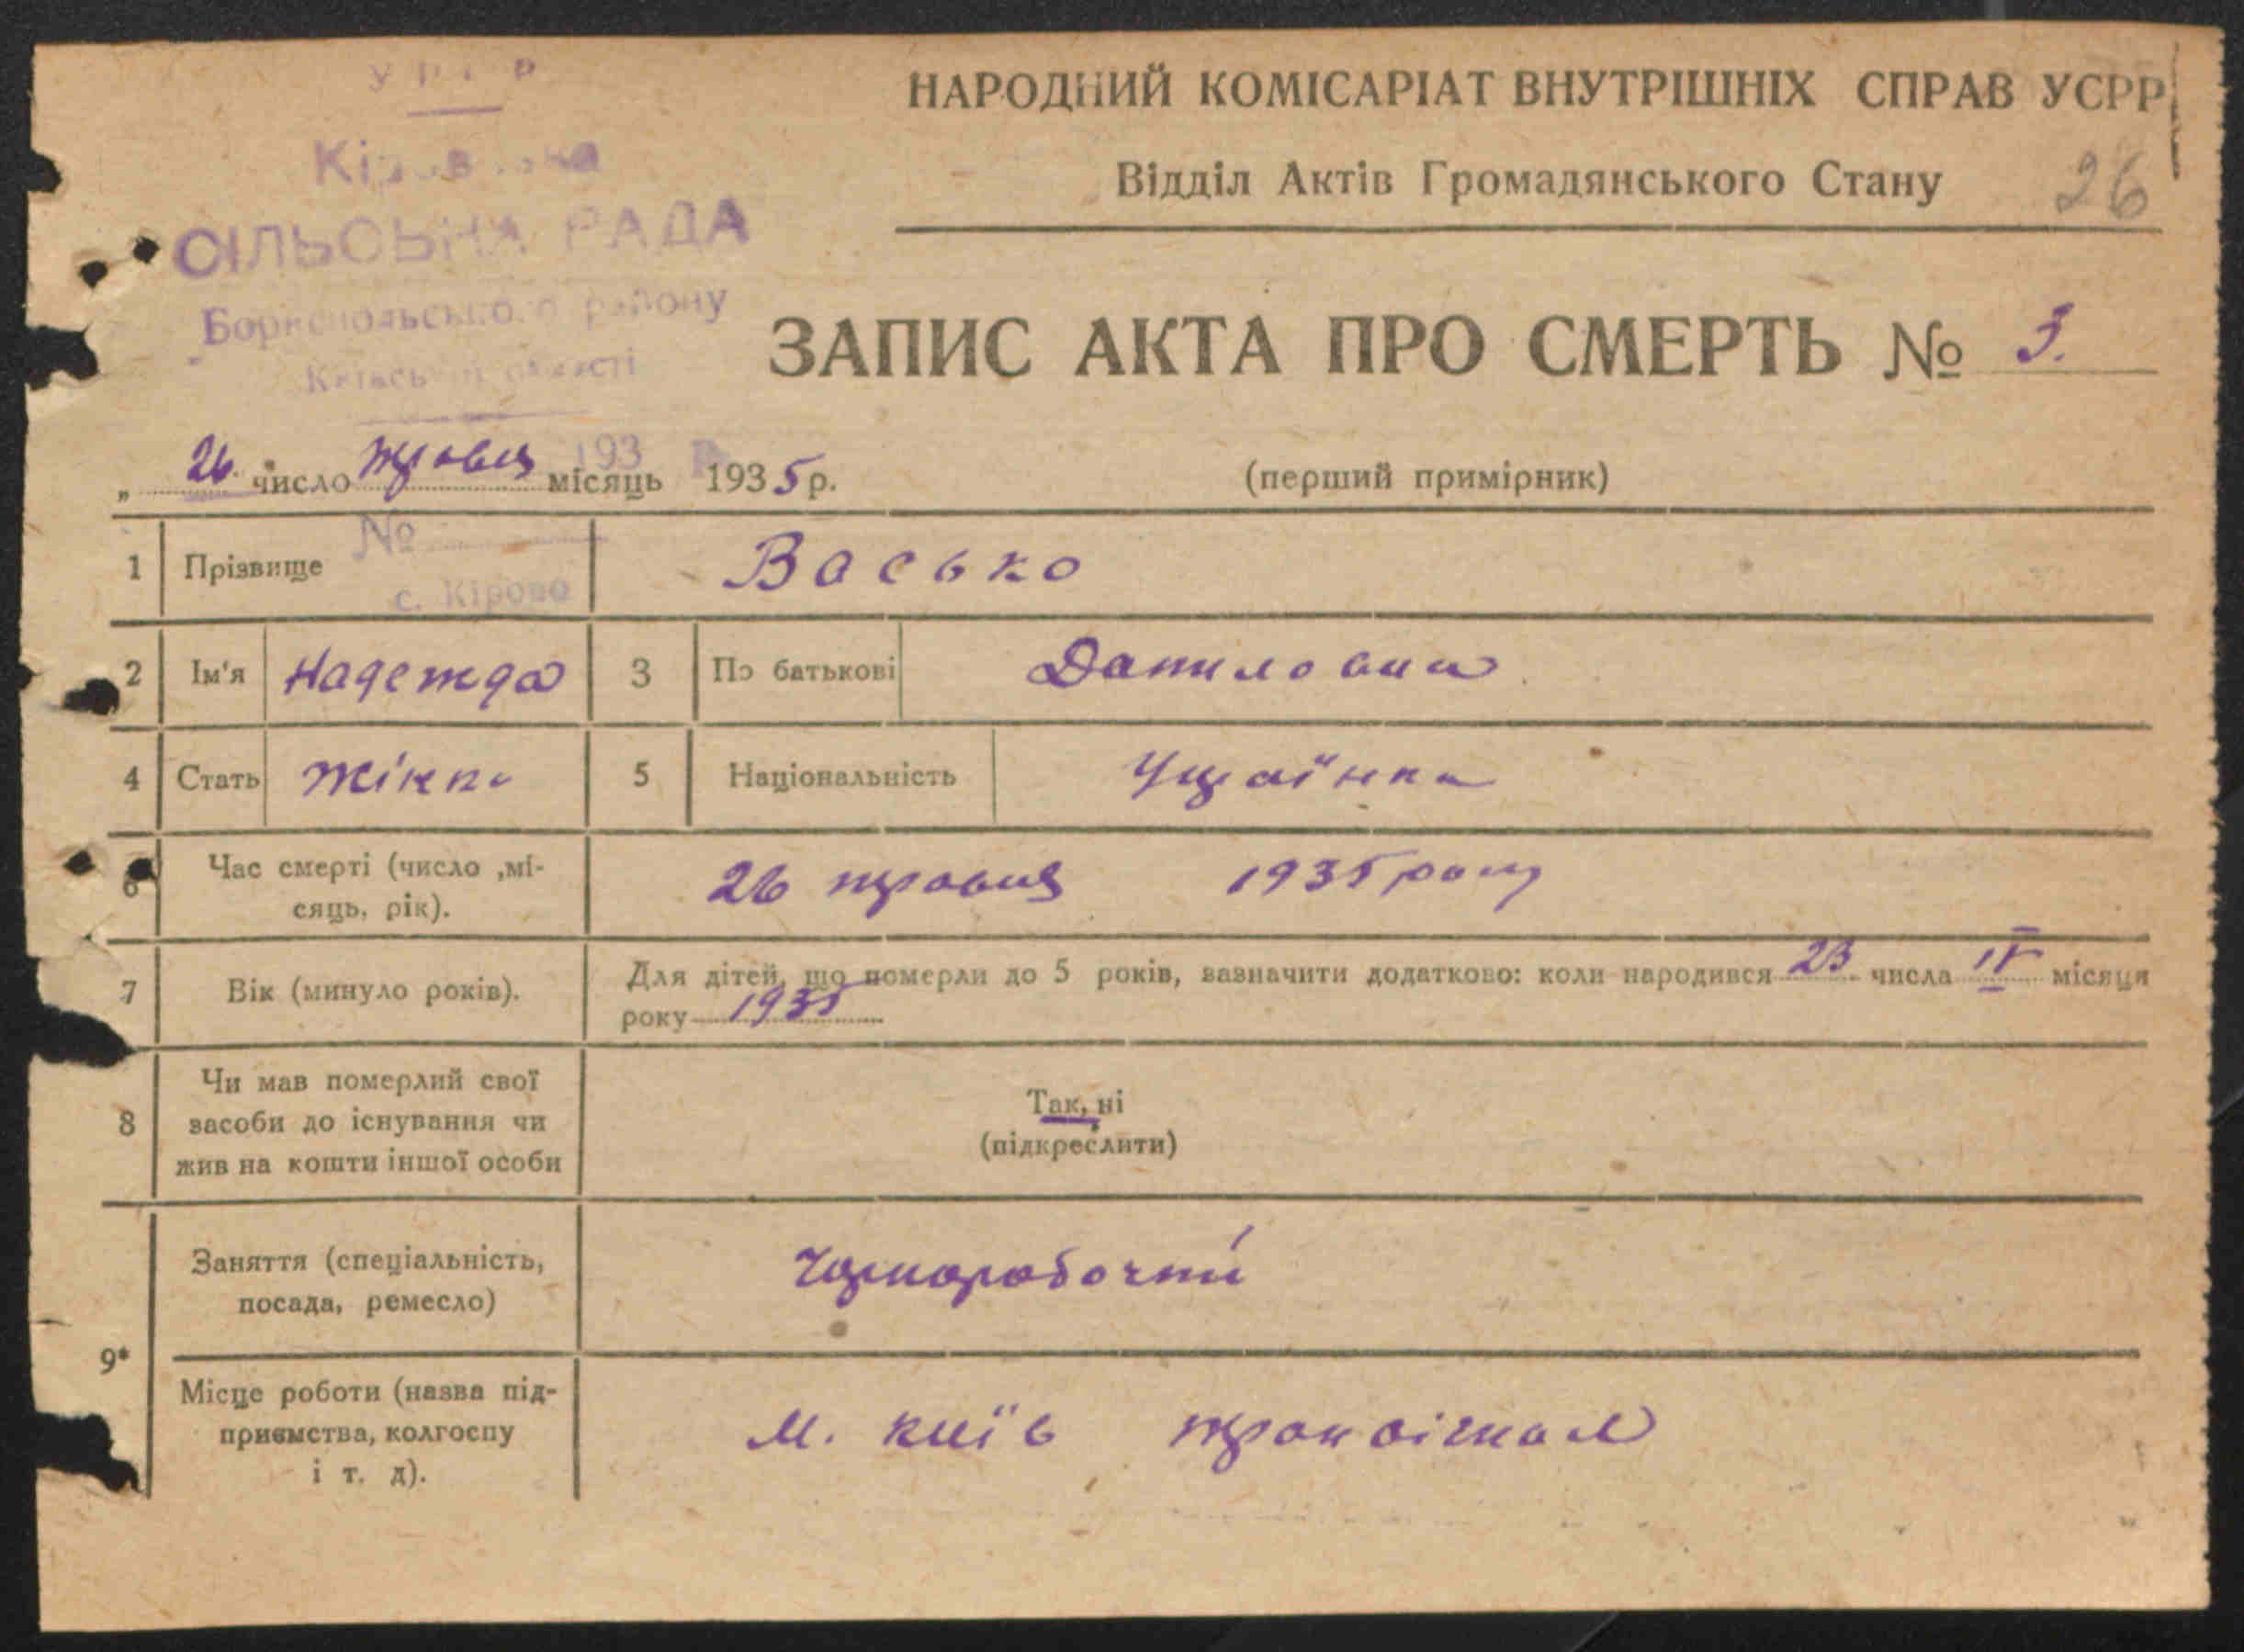 НАРОДНИЙ КОМІСАРІАТ ВНУТРІШНІХ СПРАВ УСРР
Відділ Актів Громадянського Стану
26
СІЛЬСЬКА РАДА
Бориспольського району
Київської області
193
№
с. Кірово
ЗАПИС АКТА ПРО СМЕРТЬ № 3.
„ 26 число травня місяць 1935 р.
(перший примірник)
1 Прізвище Васько
2 Ім'я Надежда 3 По батькові Даниловна
4 Стать Жінка 5 Національність Українка
6 Час смерті (число ,мі-
сяць, рік).
26 травня 1935 року
7 Вік (минуло років).
Для дітей, що померли до 5 років, зазначити додатково: коли народився 23 числа місяця
року 1935
8 Чи мав померлий свої
засоби до існування чи
жив на кошти іншої особи
Так, ні
(підкреслити)
9*
Заняття (спеціальність,
посада, ремесло)
Чорноробочий
Місце роботи (назва під-
приємства, колгоспу
і т. д).
М. Київ